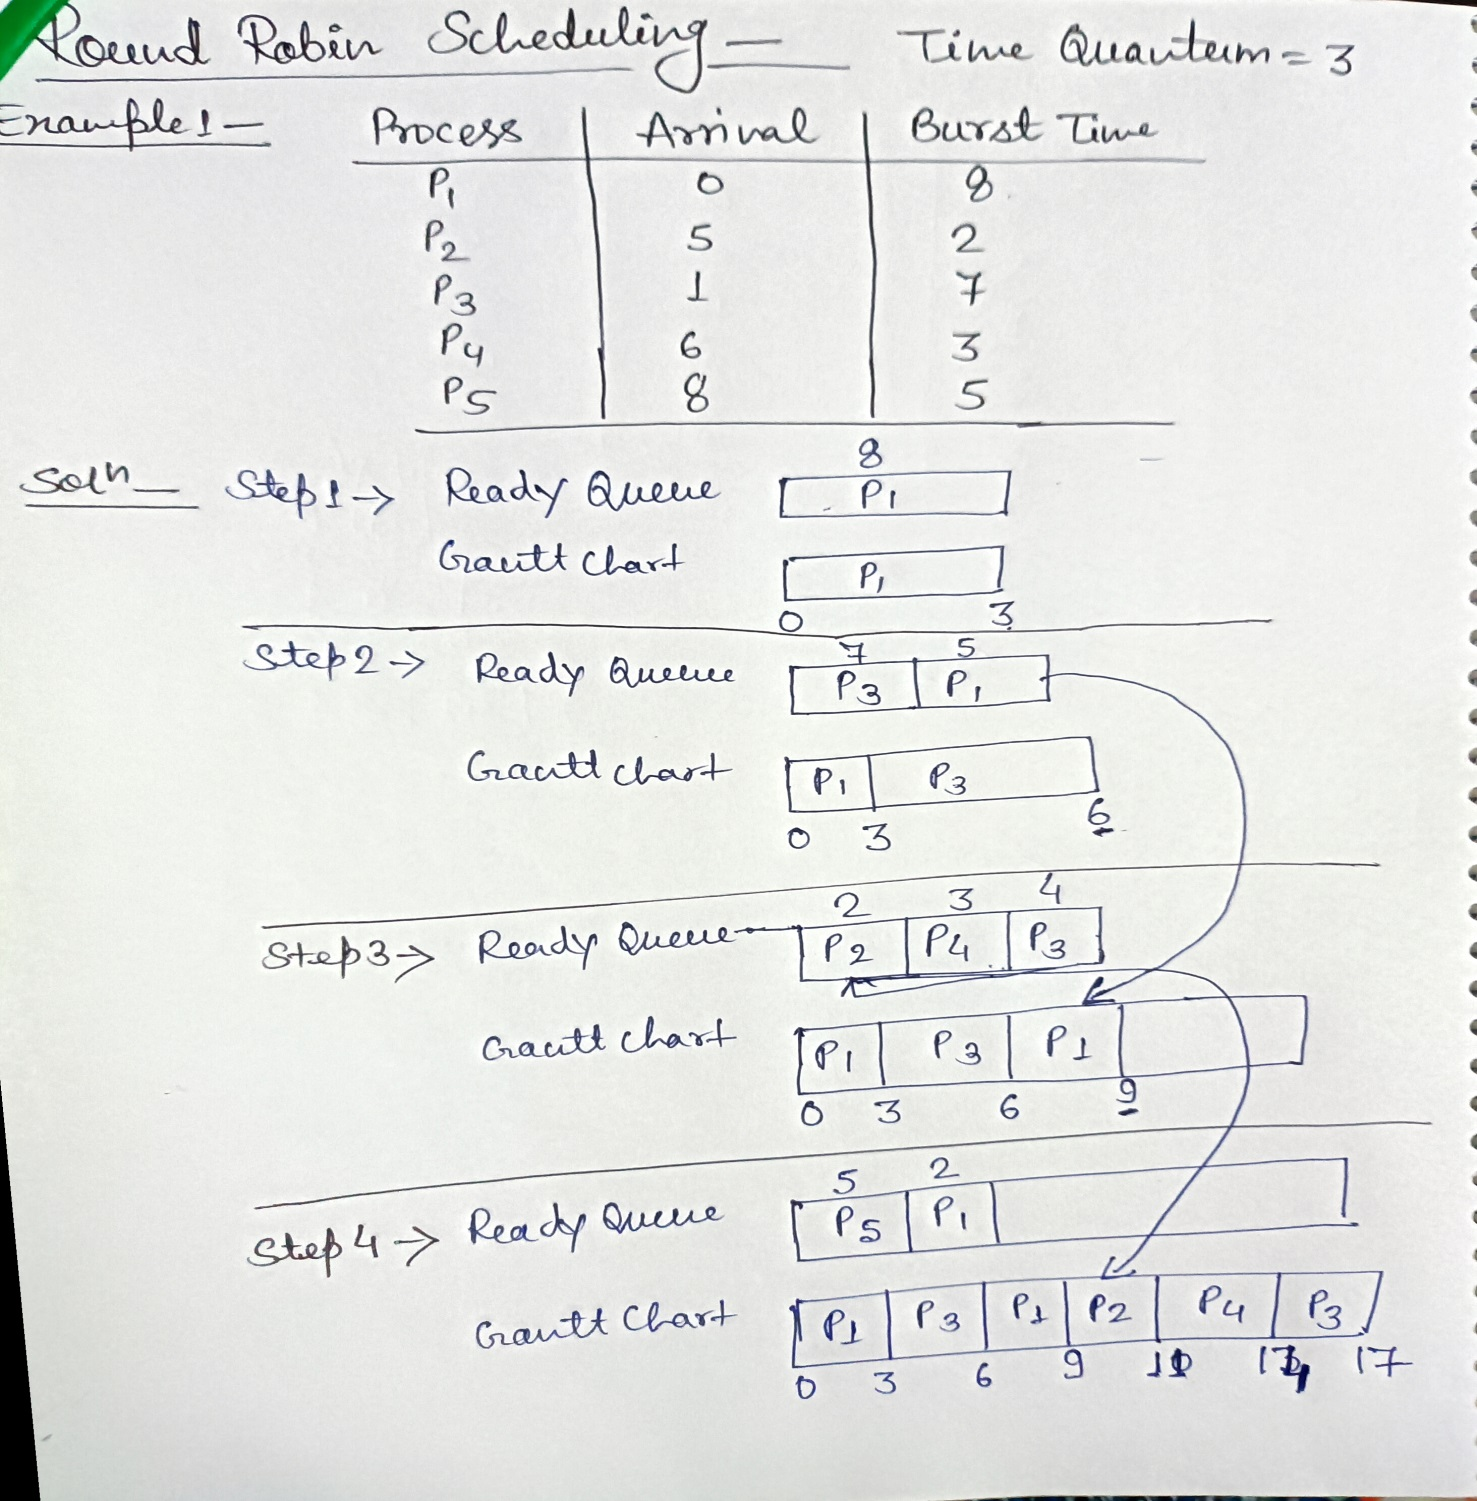 Round Robin Scheduling — Time Quantum = 3
Example 1 — Process Arrival Burst Time
P1 0 8
P2 5 2
P3 1 7
P4 6 3
P5 8 5
Soln — Step 1 → Ready Queue 8
P1
Gantt Chart P1
0 3
Step 2 → Ready Queue 7 5
P3 P1
Gantt chart P1 P3
0 3 6
Step 3 → Ready Queue 2 3 4
P2 P4 P3
Gantt chart P1 P3 P1
0 3 6 9
Step 4 → Ready Queue 5 2
P5 P1
Gantt Chart P1 P3 P1 P2 P4 P3
0 3 6 9 11 14 17